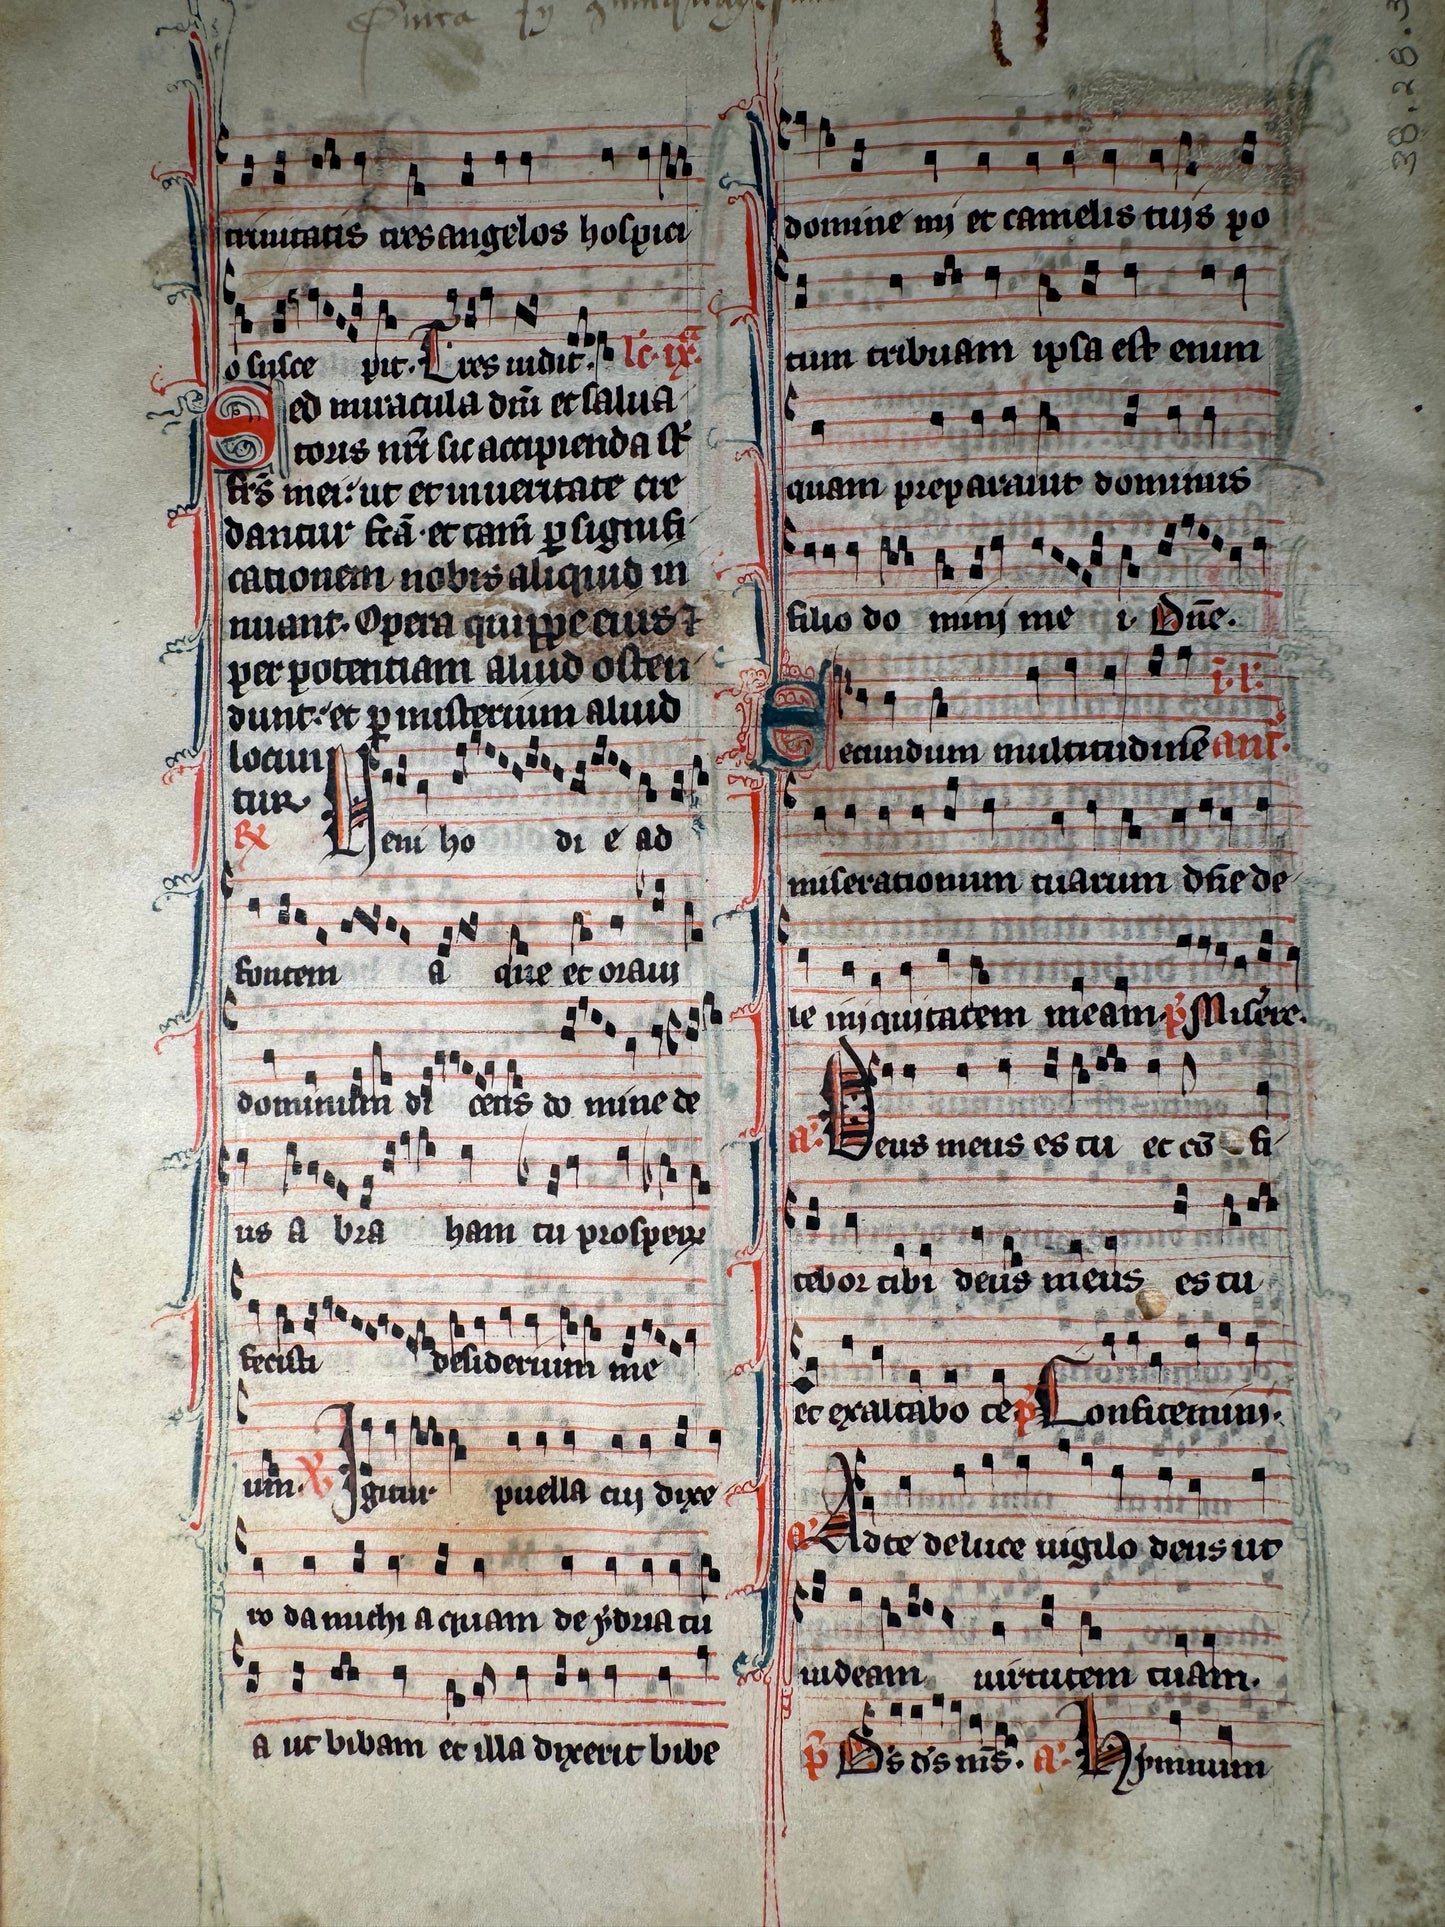 38.28.3
trinitatis tres angelos hospici
o susce pit. Tres uidit. lc. ix.
Sed miracula dn̄i et salua
toris nr̄i sic accipienda st̄
frs̄ mei: ut et in ueritate cre
dantur fc̄a. et tam̄ ꝑ signifi
cationem nobis aliquid in
nuant. Opera quippe eius ⁊
per potentiam aliud osten
dunt: et ꝑ misterium aliud
locun
tur
℟ Veni ho di e ad
fontem a que et oraui
dominum di cens do mine de
us a bra ham tu prosperum
fecisti desiderium me
um. ℣ Igitur puella cui dixe
ro da michi aquam de ydria tu
a ut bibam et illa dixerit bibe
domine mi et camelis tuis po
tum tribuam ipsa est enim
quam preparauit dominus
filio do mini me i. Dn̄e.
i. l.
Secundum multitudinē ant.
miserationum tuarum dn̄e de
le iniquitatem meam. p̄ Misere.
a. Deus meus es tu et cō fi
tebor tibi deus meus es tu
et exaltabo te p̄ Confitemini.
a. Ad te de luce uigilo deus ut
uideam uirtutem tuam.
p̄ D's d's ms̄. a. Hymnum